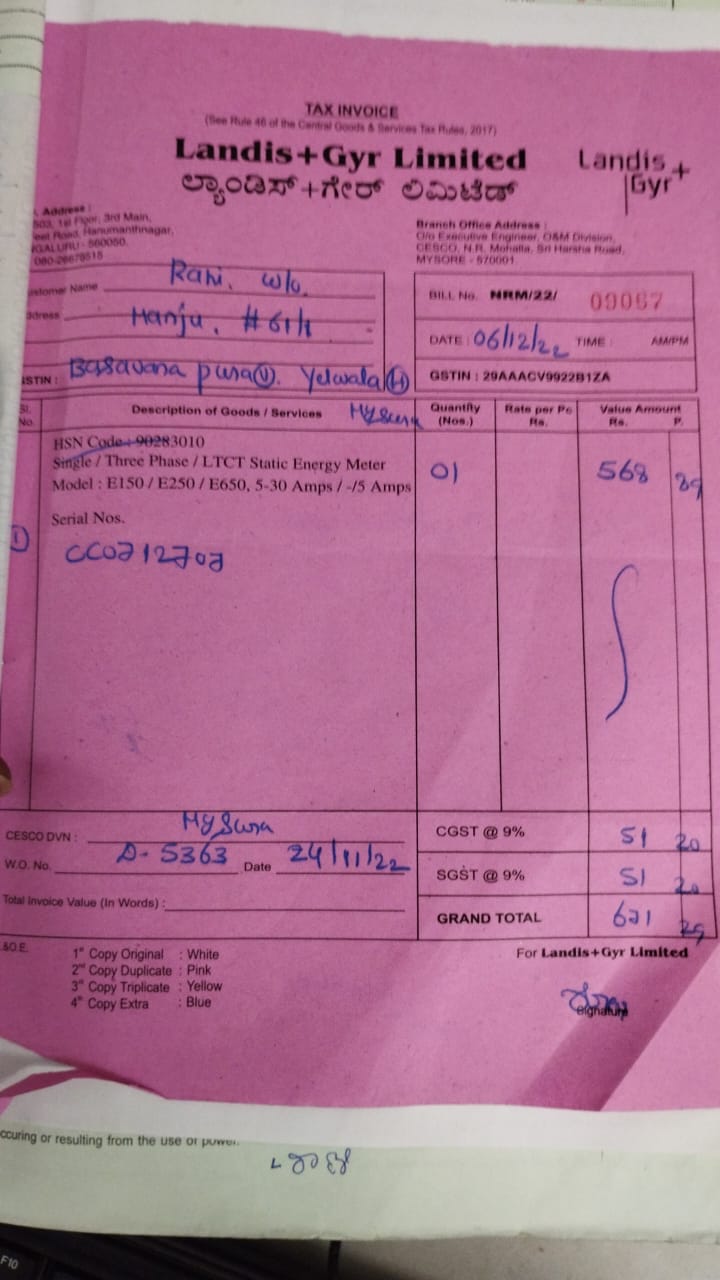 TAX INVOICE
(See Rule 46 of the Central Goods & Services Tax Rules, 2017)
Landis+Gyr Limited
ಲ್ಯಾಂಡಿಸ್+ಗೇರ್ ಲಿಮಿಟೆಡ್
Landis+
Gyr
Address :
1st Floor, 3rd Main,
Road, Hanumanthnagar,
GALURU - 560050.
Branch Office Address :
O/o Executive Engineer, O&M Division,
CESCO, N.R. Mohalla, Sri Harsha Road,
MYSORE - 570001
ustomer Name Rani. w/o.
ddress Manju. # 61/1
Basavana pura (V). Yelwala (H)
Mysuru
STIN :
BILL No. NRM/22/ 09067
DATE : 06/12/22 TIME : AM/PM
GSTIN : 29AAACV9922B1ZA
Sl. No. Description of Goods / Services Quantity (Nos.) Rate per Pc Rs. Value Amount Rs. P.
HSN Code : 90283010
Single / Three Phase / LTCT Static Energy Meter
Model : E150 / E250 / E650, 5-30 Amps / -/5 Amps
01 568 89
Serial Nos.
1)
CESCO DVN : Mysuru
W.O. No. D- 5363 Date 24/11/22
Total Invoice Value (In Words) :
CGST @ 9% 51 20
SGST @ 9% 51 20
GRAND TOTAL 671 29
&O.E.
1st Copy Original : White
2nd Copy Duplicate : Pink
3rd Copy Triplicate : Yellow
4th Copy Extra : Blue
For Landis+Gyr Limited
Signature
ccuring or resulting from the use of power.
F10